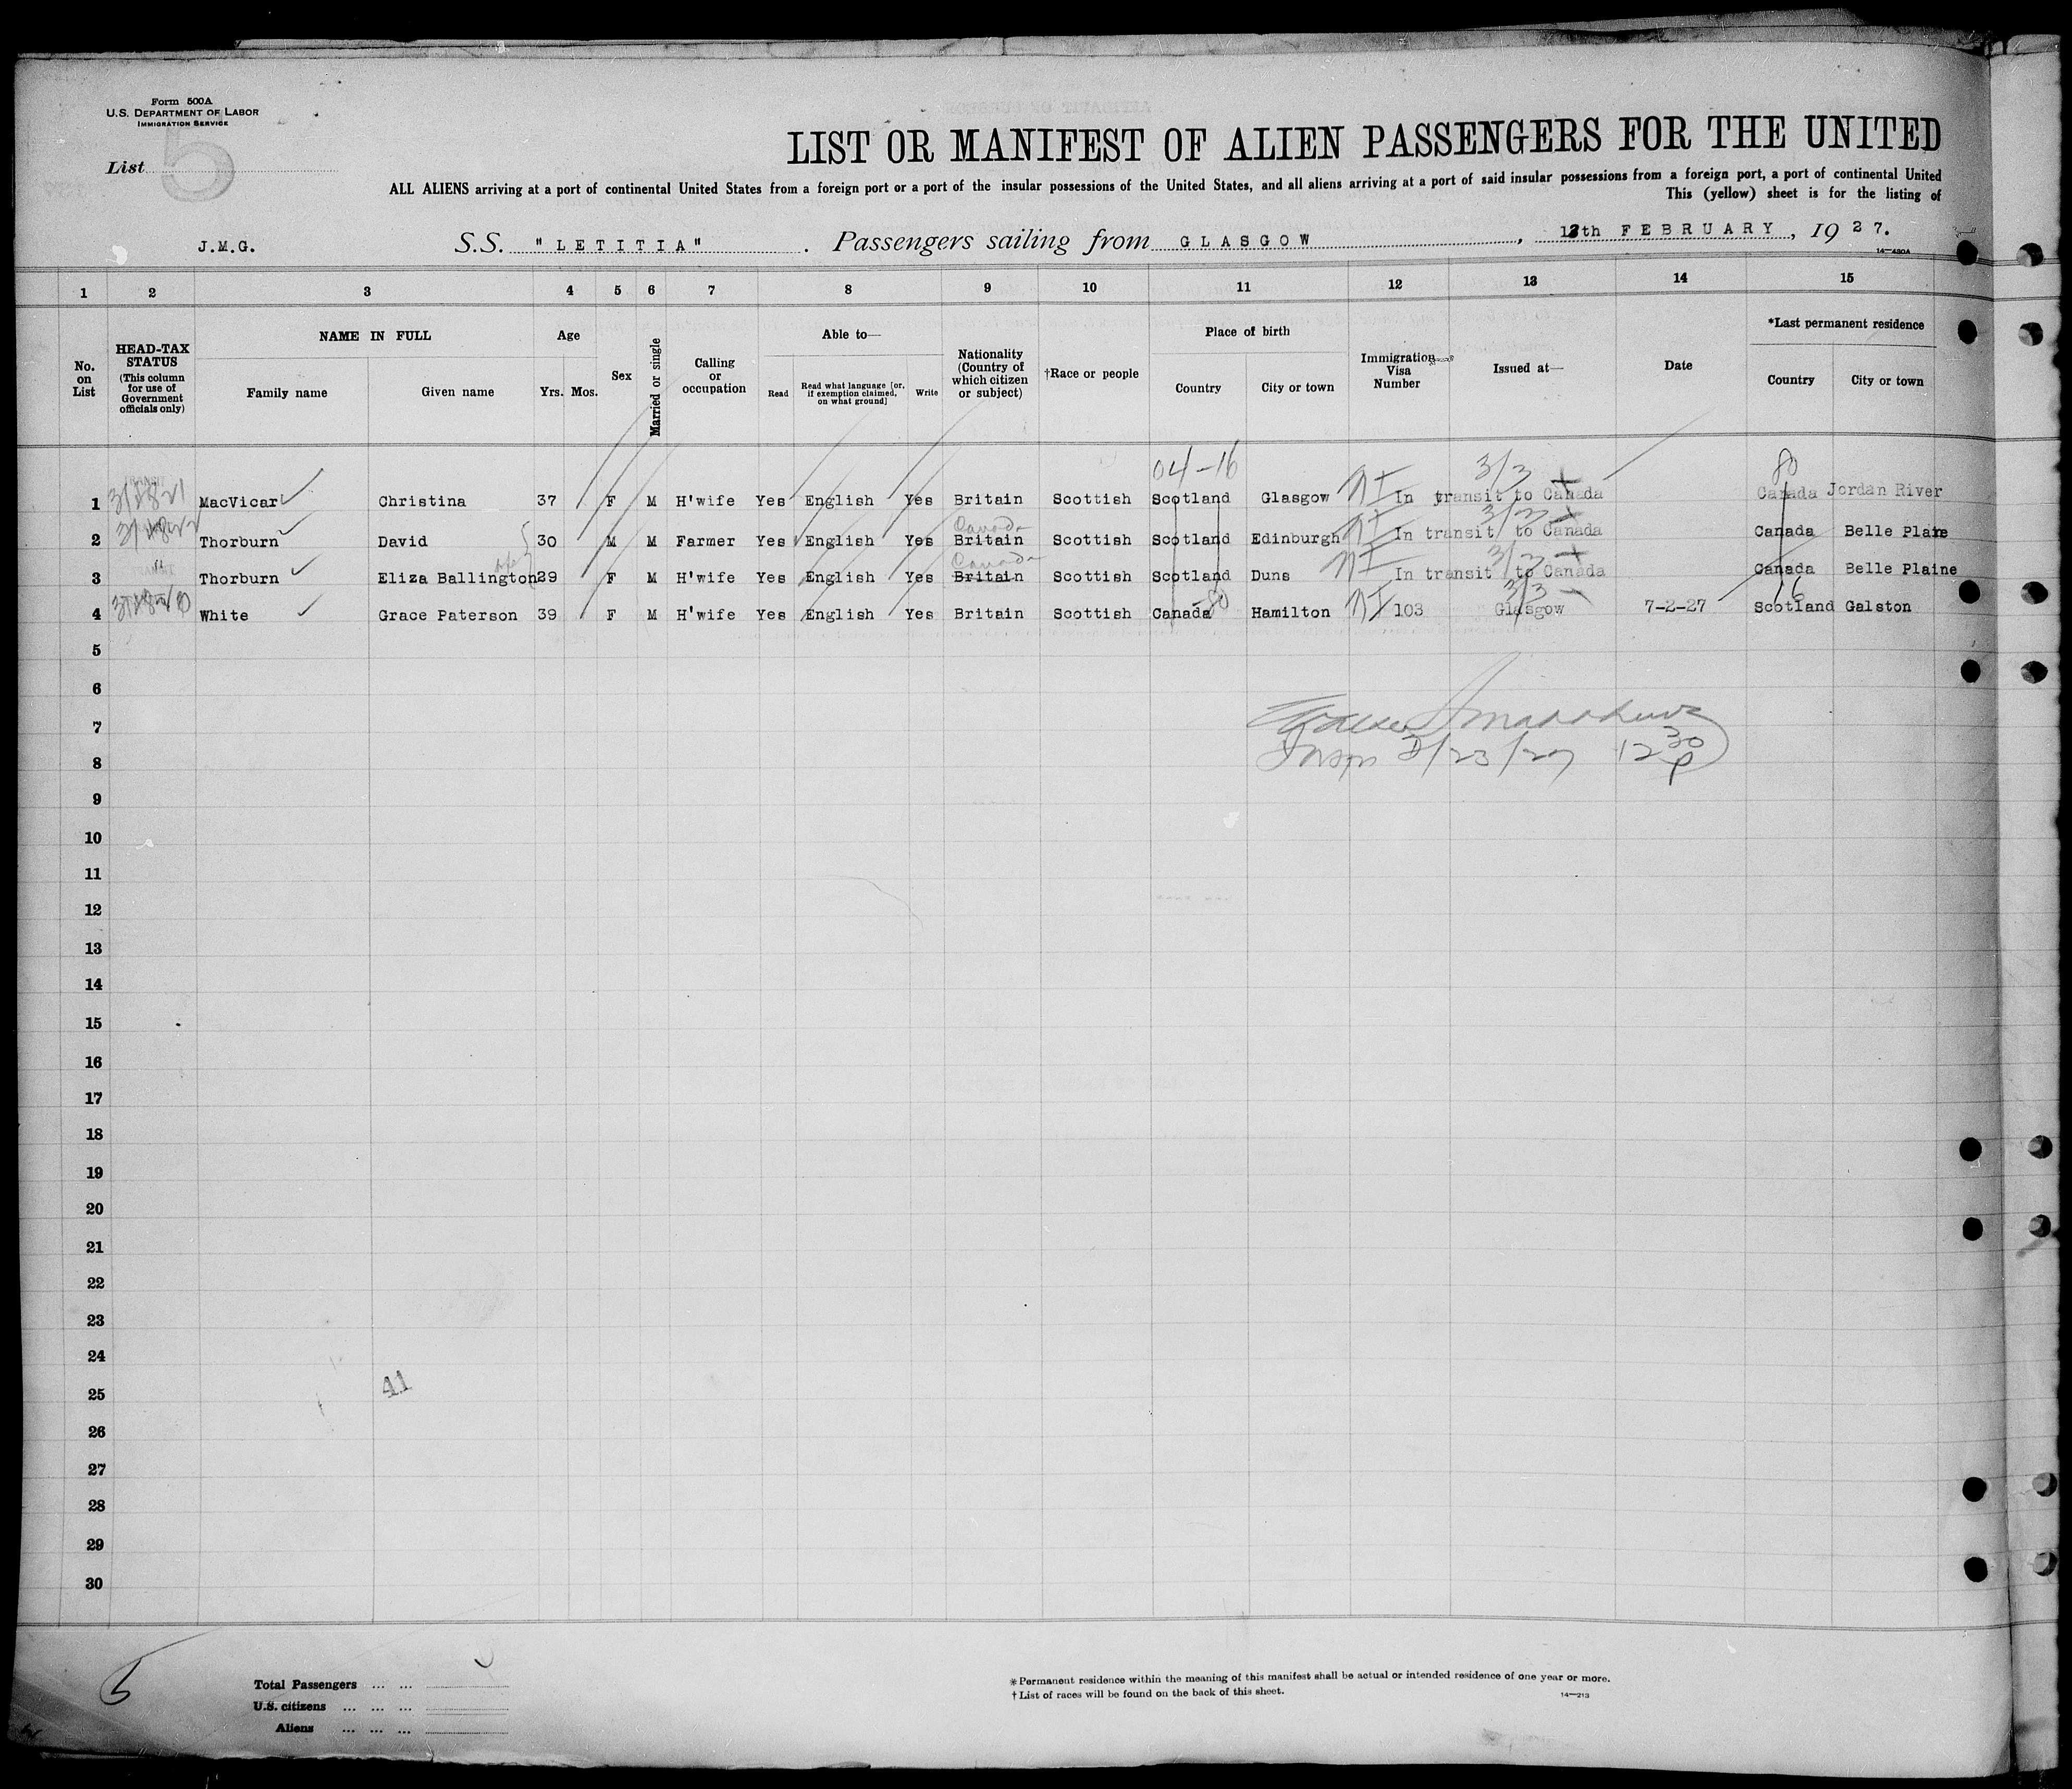 Form 500A
U.S. DEPARTMENT OF LABOR
IMMIGRATION SERVICE
List 5
LIST OR MANIFEST OF ALIEN PASSENGERS FOR THE UNITED
ALL ALIENS arriving at a port of continental United States from a foreign port or a port of the insular possessions of the United States, and all aliens arriving at a port of said insular possessions from a foreign port, a port of continental United
This (yellow) sheet is for the listing of
J.M.G. S.S. "LETITIA". Passengers sailing from GLASGOW, 12th FEBRUARY, 1927.
14—480A
1 2 3 4 5 6 7 8 9 10 11 12 13 14 15
No. on List
HEAD-TAX STATUS (This column for use of Government officials only)
NAME IN FULL
Family name Given name
Age
Yrs. Mos.
Sex
Married or single
Calling or occupation
Able to—
Read Read what language [or, if exemption claimed, on what ground] Write
Nationality (Country of which citizen or subject)
†Race or people
Place of birth
Country City or town
Immigration Visa Number
Issued at—
Date
*Last permanent residence
Country City or town
04-16 3/3 80
1 MacVicar Christina 37 F M H'wife Yes English Yes Britain Scottish Scotland Glasgow NI In transit to Canada Canada Jordan River
Canada 3/3
2 Thorburn David 30 M M Farmer Yes English Yes Britain Scottish Scotland Edinburgh NI In transit to Canada Canada Belle Plaine
wife Canada 3/3
3 Thorburn Eliza Ballington 29 F M H'wife Yes English Yes Britain Scottish Scotland Duns NI In transit to Canada Canada Belle Plaine
80 3/3 16
4 White Grace Paterson 39 F M H'wife Yes English Yes Britain Scottish Canada Hamilton NI 103 Glasgow 7-2-27 Scotland Galston
5
6
7
Insp 2/23/27 12 30 P
8
9
10
11
12
13
14
15
16
17
18
19
20
21
22
23
24
25 41
26
27
28
29
30
5
Total Passengers ... ...
U.S. citizens ... ... ...
Aliens ... ... ...
* Permanent residence within the meaning of this manifest shall be actual or intended residence of one year or more.
† List of races will be found on the back of this sheet.
14—213